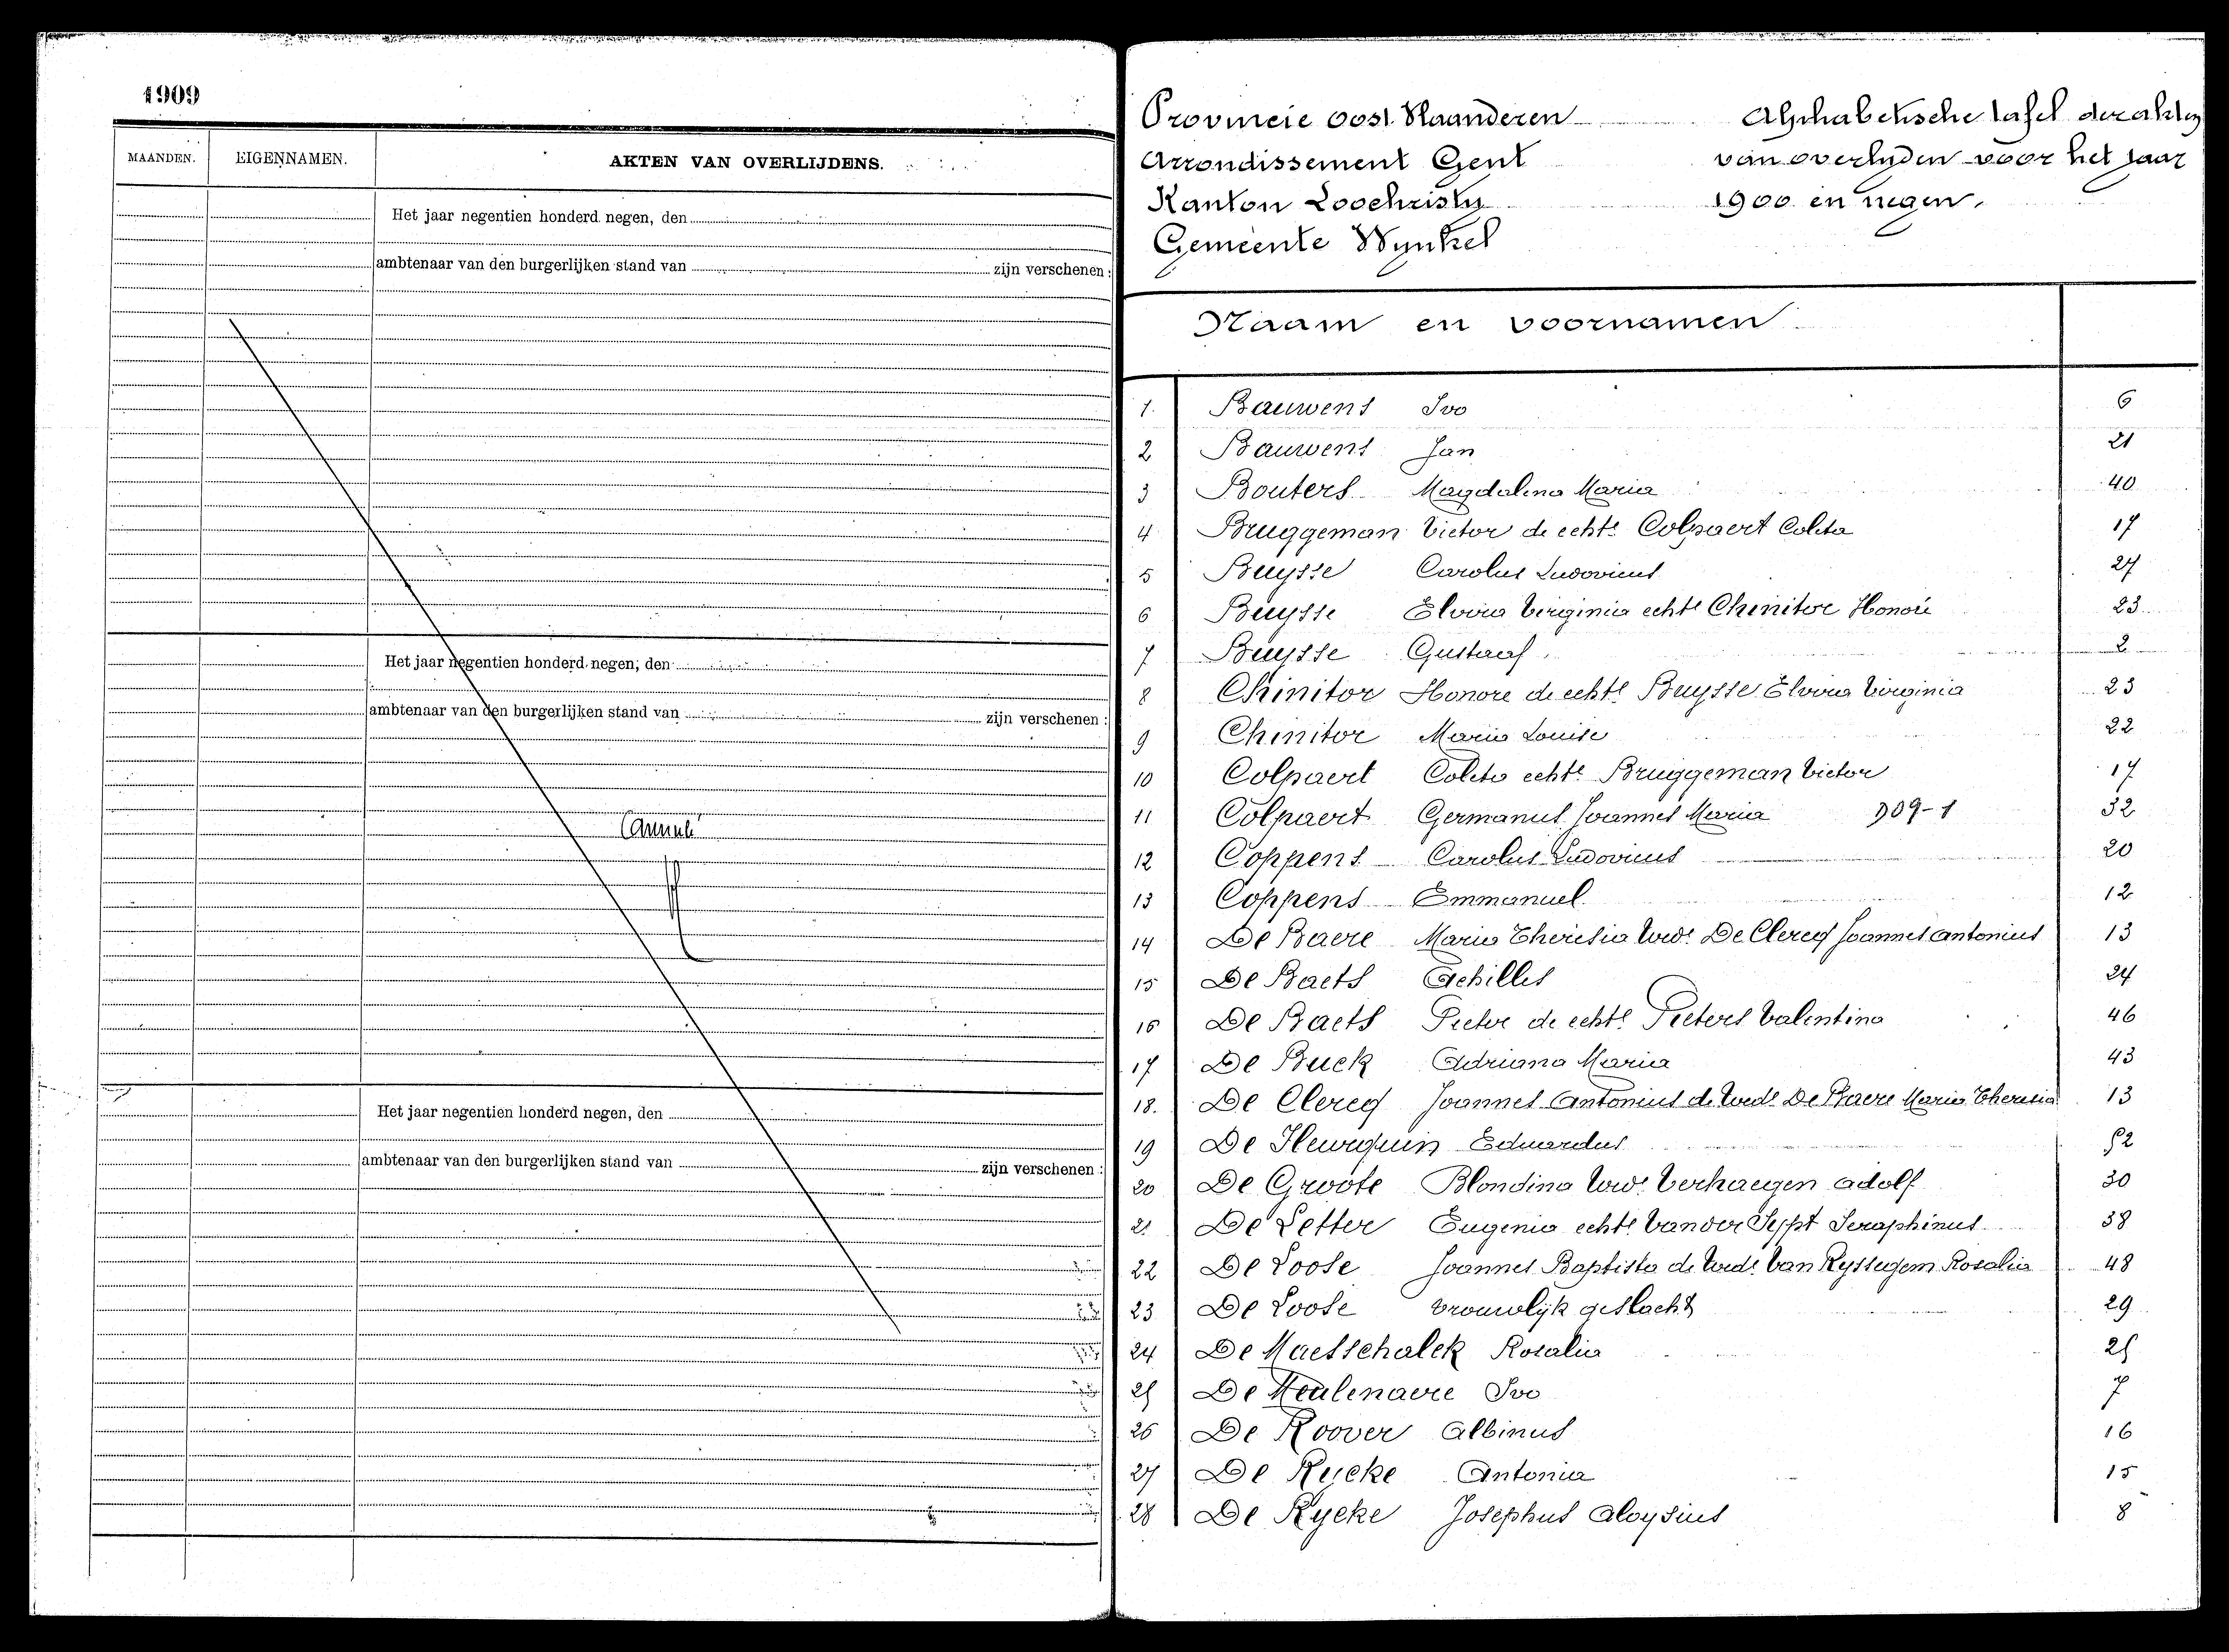 1909
MAANDEN. EIGENNAMEN. AKTEN VAN OVERLIJDENS.
Het jaar negentien honderd negen, den
ambtenaar van den burgerlijken stand van zijn verschenen :
Het jaar negentien honderd negen, den
ambtenaar van den burgerlijken stand van zijn verschenen :
Annulé
Het jaar negentien honderd negen, den
ambtenaar van den burgerlijken stand van zijn verschenen :
Provincie Oost Vlaanderen
Arrondissement Gent
Kanton Loochristy
Gemeente Wynkel
Alphabetische tafel der akten
van overlyden voor het jaar
1900 en negen.
Naam en voornamen
1. Bauwens Ivo 6
2 Bauwens Jan 21
3 Bouters Magdalena Maria 40
4 Bruggeman Victor de echte Colpaert Coleta 17
5 Buysse Carolus Ludovicus 27
6 Buysse Elvira Virginia echte Chinitor Honoré 23
7 Buysse Gustaaf 2
8 Chinitor Honore de echte Buysse Elvira Virginia 23
9 Chinitor Maria Louise 22
10 Colpaert Coleta echte Bruggeman Victor 17
11 Colpaert Germanus Joannes Maria D09-1 32
12 Coppens Carolus Ludovicus 20
13 Coppens Emmanuel 12
14 De Baere Maria Theresia wwe De Clercq Joannes Antonius 13
15 De Baets Achilles 24
16 De Baets Pieter de echte Pieters Valentina 46
17 De Buck Adriana Maria 43
18. De Clercq Joannes Antonius de wede De Baere Maria Theresia 13
19 Eduardus 52
20 De Groote Blondina wwe Verhaegen Adolf 30
21 De Letter Eugenia echte Van der Sypt Seraphinus 38
22 De Loose Joannes Baptista de wede Van Ryssegem Rosalia 48
23 De Loose vrouwlijk geslacht 29
24 De Maesschalck Rosalia 25
25 De Meulenaere Ivo 7
26 De Roover Albinus 16
27 De Rycke Antonia 15
28 De Rycke Josephus Aloysius 8